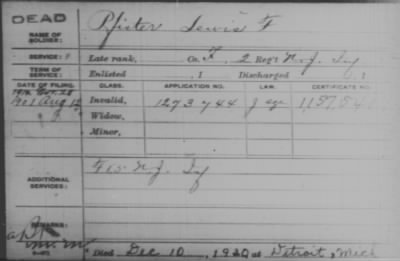 DEAD
NAME OF SOLDIER: Pfister Lewis F
SERVICE: Late rank, Co. F, 2 Reg't N. J. Inf
TERM OF SERVICE: Enlisted , 1 Discharged , 1
DATE OF FILING. CLASS. APPLICATION NO. LAW. CERTIFICATE NO.
1901 Aug 12 Invalid, 1273744 1157541
Widow,
Minor,
ADDITIONAL SERVICES: F 25 N. J. Inf
REMARKS:
Died Dec 10, 1920 at Detroit, Mich